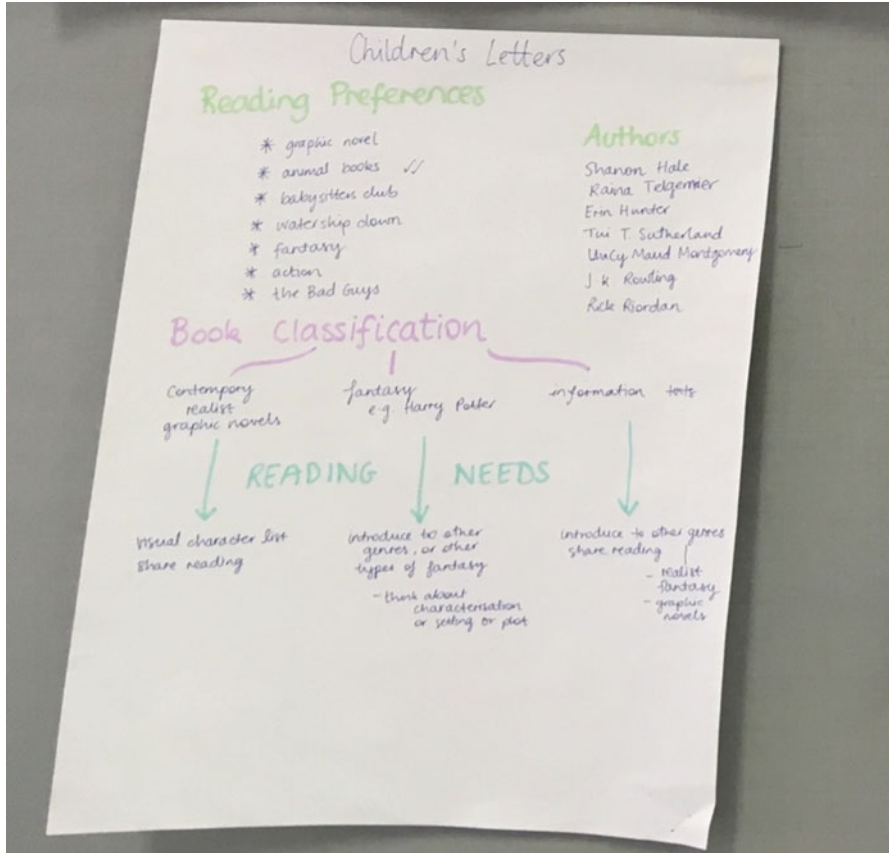 Children's Letters
Reading Preferences
* graphic novel
* animal books ✓✓
* babysitters club
* watership down
* fantasy
* action
* the Bad Guys
Authors
Shanon Hale
Raina Telgemier
Erin Hunter
Tui T. Sutherland
Maud Montgomery
J.K Rowling
Rick Riordan
Book Classification
Contempory
realist
graphic novels
fantasy
e.g. Harry Potter
information texts
READING NEEDS
visual character list
share reading
introduce to other
genres, or other
types of fantasy
- think about
characterisation
or setting or plot
introduce to other genres
share reading
- realist
fantasy
- graphic
novels